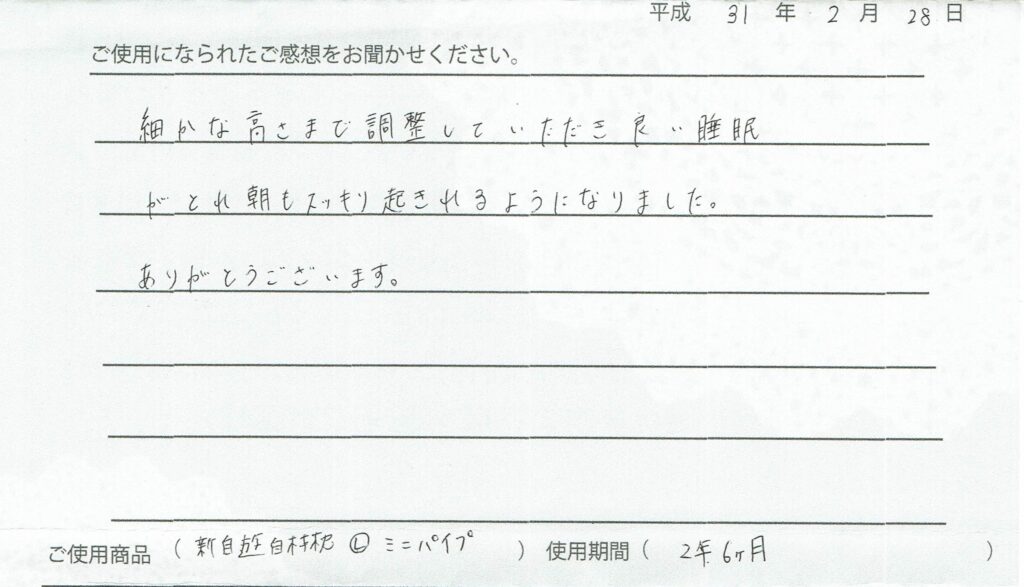 平成 31 年 2 月 28 日
ご使用になられたご感想をお聞かせください。
細かな高さまで調整していただき良い睡眠
がとれ朝もスッキリ起きれるようになりました。
ありがとうございます。
ご使用商品 ( 新自遊自材枕 Ⓛ ミニパイプ ) 使用期間 ( 2年6ヶ月 )